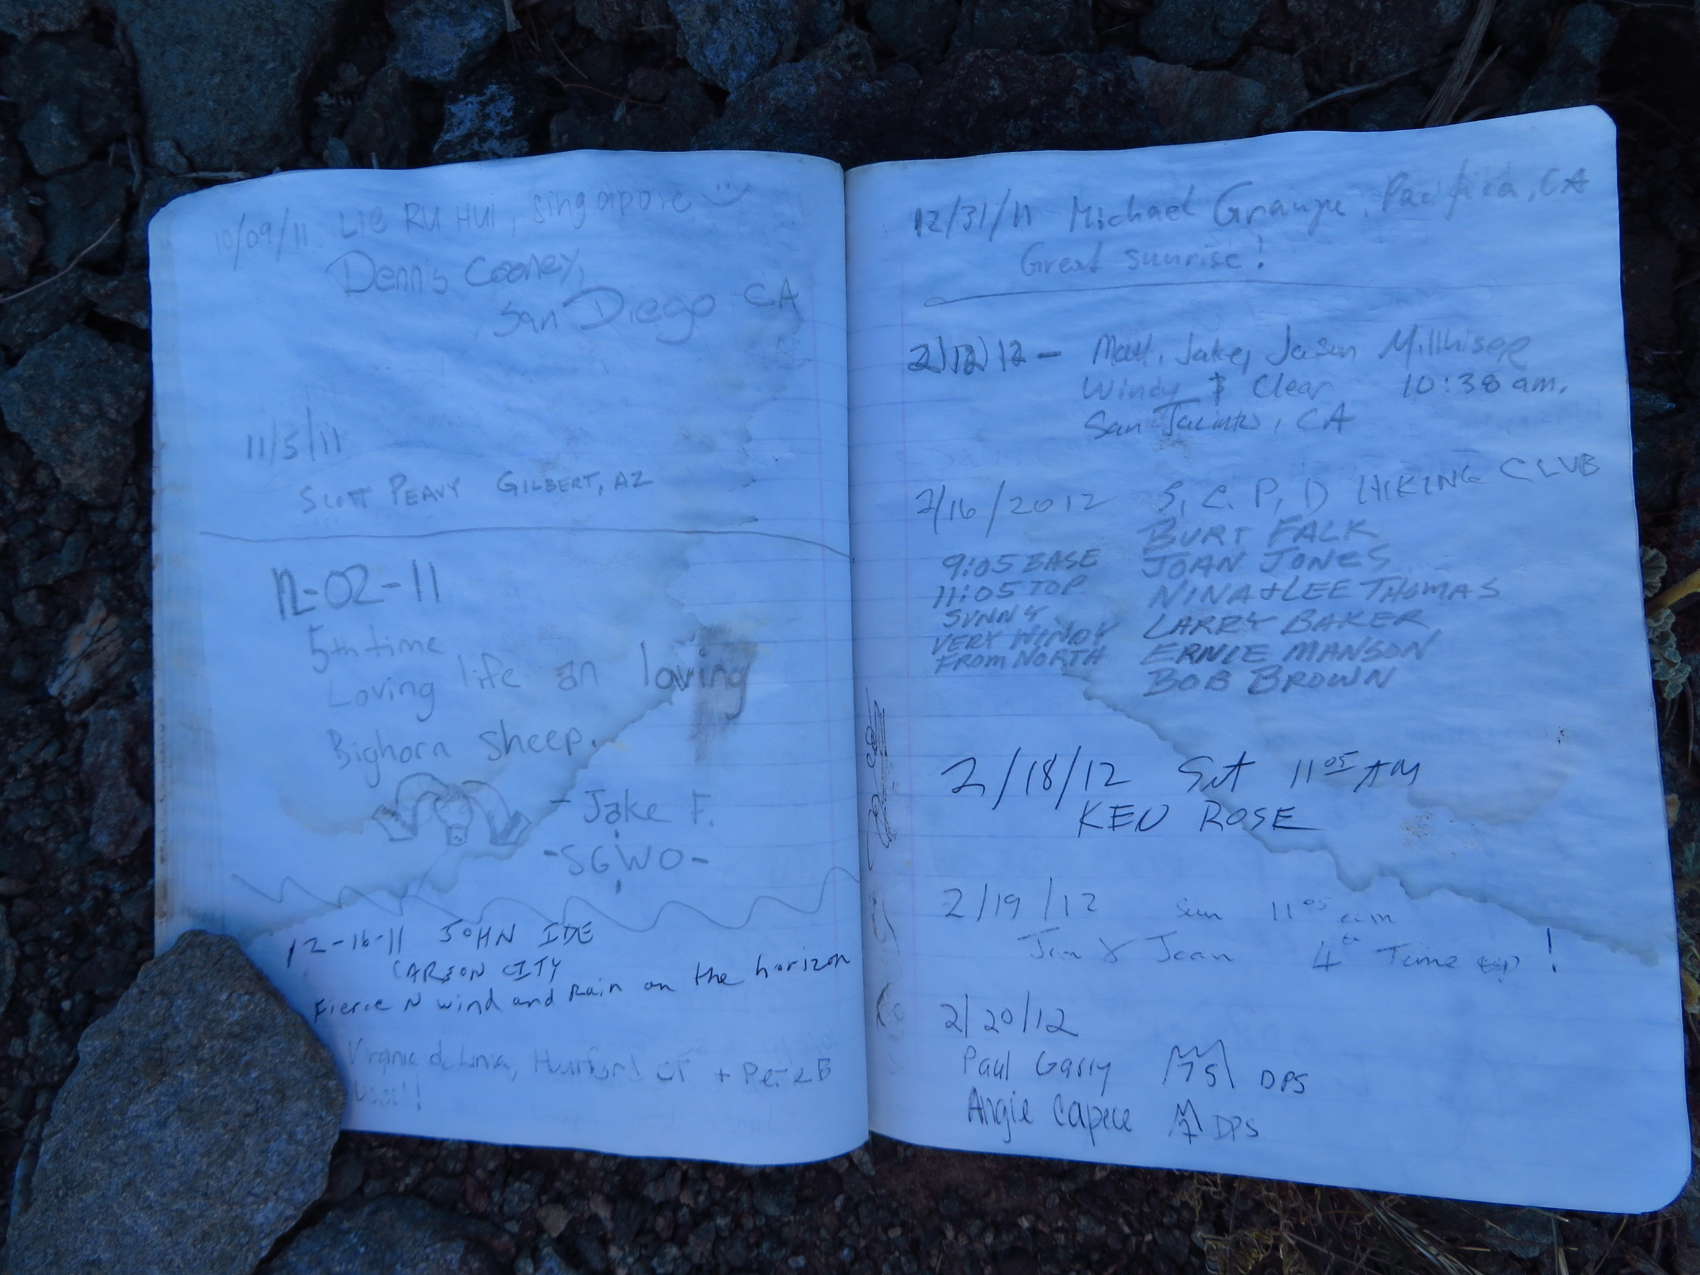 10/09/11 LIE RU HUI, Singapore
Dennis Cooney,
San Diego CA
11/5/11
SCOTT PEAVY GILBERT, AZ
12-02-11
5th time
Loving life an loving
Bighorn sheep.
- Jake F.
-SGWO-
12-16-11 JOHN IDE
CARSON CITY
Fierce N wind and Rain on the horizon
Virginia + Pete B
12/31/11 Michael Pacifica, CA
Great sunrise!
2/12/12 - Matt, Jake, Jason Millhiser
Windy & Clear 10:38 am.
San Jacinto, CA
2/16/2012 S, C, P, D HIKING CLUB
BURT FALK
9:05 BASE JOAN JONES
11:05 TOP NINA & LEE THOMAS
SUNNY LARRY BAKER
VERY WINDY ERNIE MANSON
FROM NORTH BOB BROWN
2/18/12 Sat 11 05 AM
KEN ROSE
2/19/12 Sun 11 05 am
Jim & Jean 4th Time up!
2/20/12
Paul Garry DPS
Angie Capece DPS